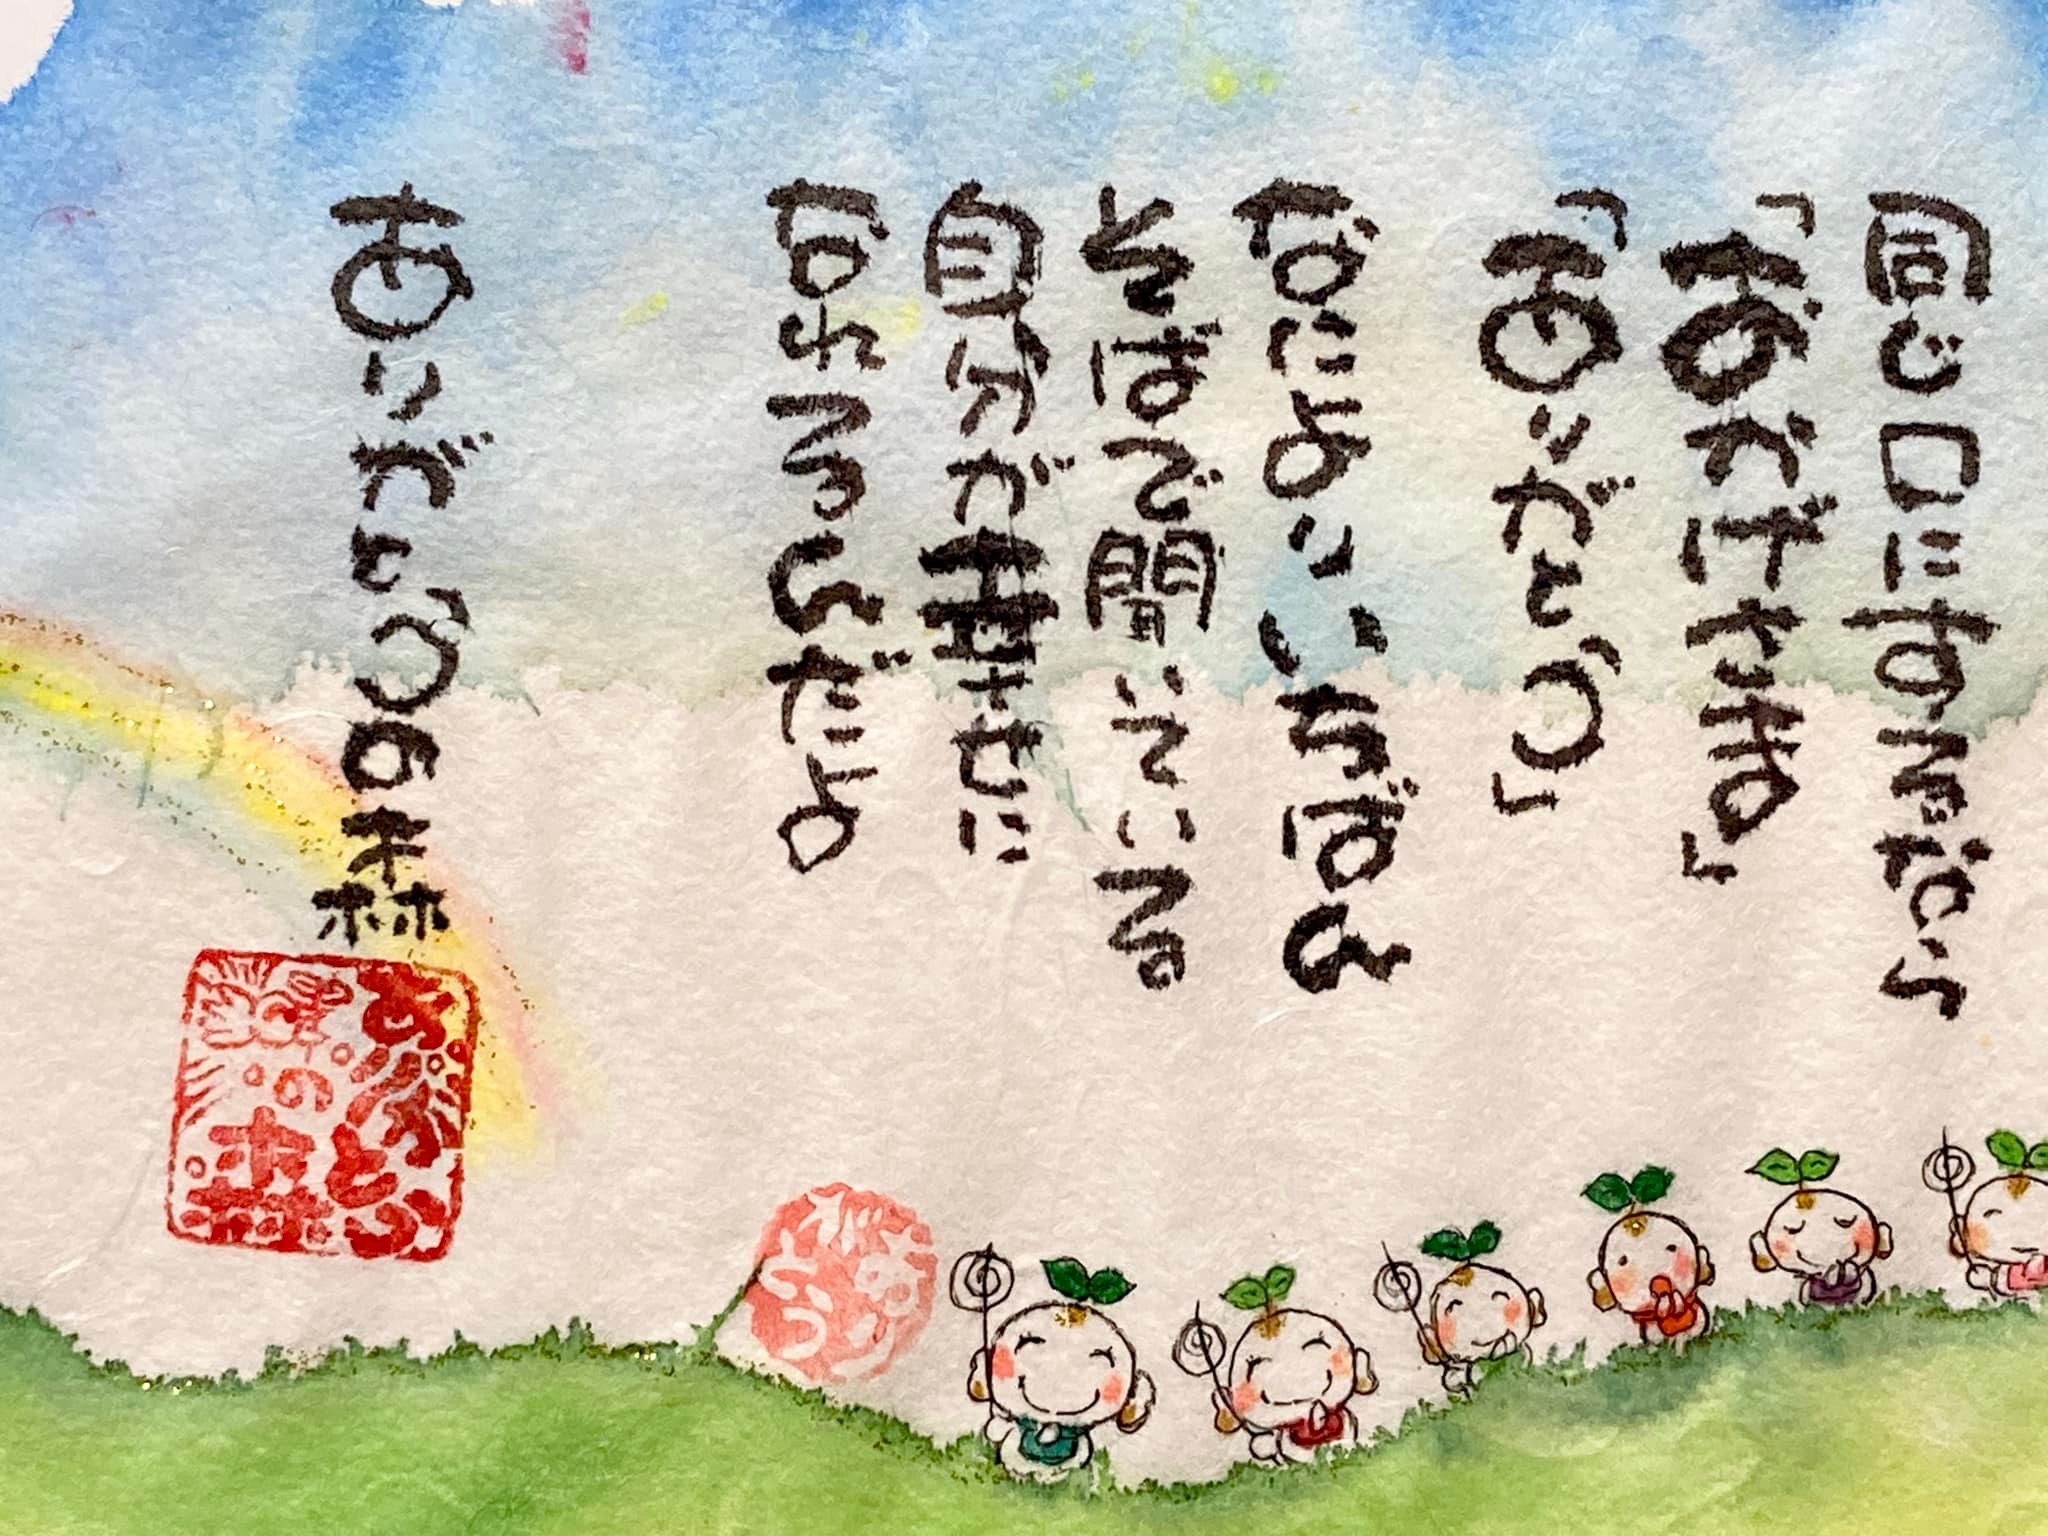 同じ口にするなら
「おかげさま」
「ありがとう」
なによりいちばん
そばで聞いている
自分が幸せに
なれるんだよ
ありがとうの森
ありがとう
の森
ありがとう